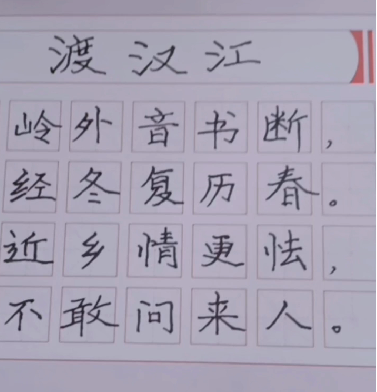 渡汉江
岭外音书断，
经冬复历春。
近乡情更怯，
不敢问来人。